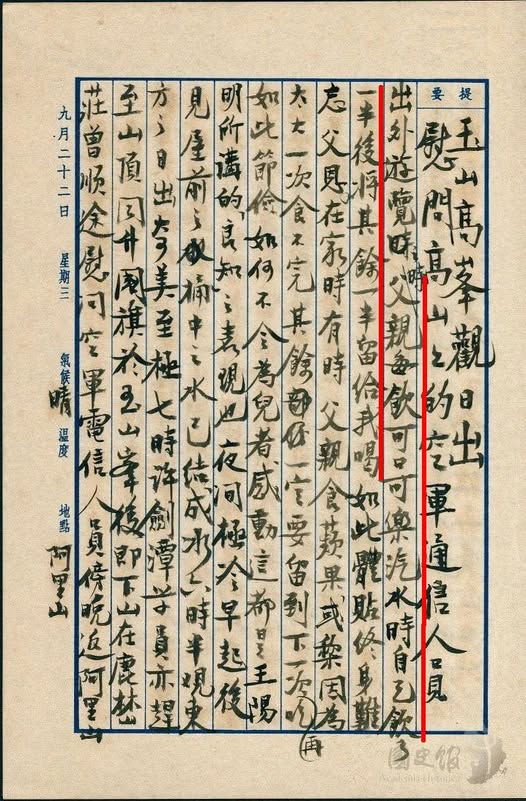 提要
玉山高峯觀日出
慰問高山上的空軍通信人員
出外游覽時時父親每飲可口可樂汽水時自己飲了
一半後將其餘一半留給我喝 如此體貼終身難
忘 父恩在家時有時 父親食蘋果或梨因為
太大一次食不完其餘部份一定要留到下一次再吃
如此節儉如何不令為兒者感動這都是王陽
明所講的良知之表現也夜間極冷早起後
見屋前之桶中之水已結成冰六時半觀東
方之日出奇美至極七時許劍潭學員亦趕
至山頂同升國旗於玉山峯後即下山在鹿林山
莊曾順途慰問空軍電信人員傍晚返阿里山
九月二十二日 星期三 氣候 晴 溫度 地點 阿里山
國史館
Academia Historica